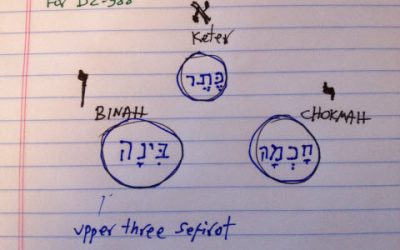 For
א
Keter
כֶּתֶר
ו
י
BINAH
CHOKMAH
בִּינָה
חָכְמָה
upper three sefirot